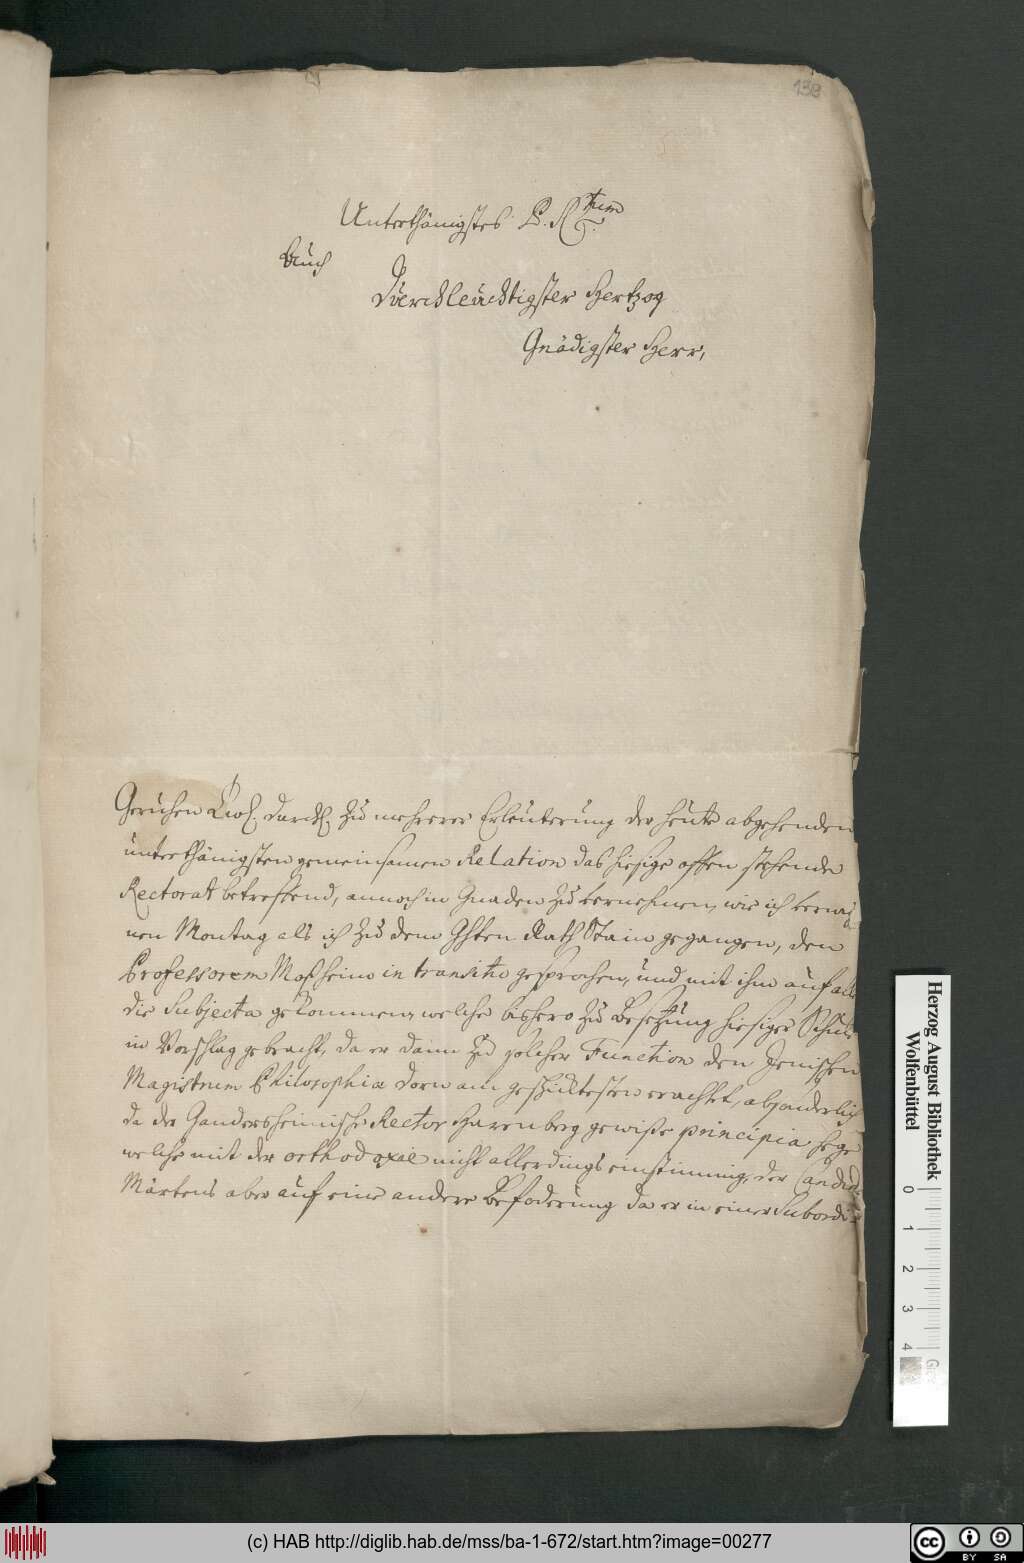 138
Unterthänigstes P. S.tum
Auch
Durchleuchtigster Hertzog
Gnädigster Herr,
Geruhen Ewl. Durchl. zu mehrerer Erleuterung der heute abgehenden
unterthänigsten gemeinsamen Relation das hiesige offen stehende
Rectorat betreffend, annoch in Gnaden zu vernehmen, wie ich
nen Montag als ich zu dem Rath Stain gegangen, den
Professorem Moßheim in transitu gesprochen, und mit ihm auf alle
die Subjecta gekommen, welche bishero zu Besetzung hiesiger Schule
in Vorschlag gebracht, da er dann zu solcher Function den Jenischen
Magistrum Philosophiæ Dorn am geschicktesten erachtet, absonderlich
da der Gandersheimische Rector Harenberg gewiße principia hege
welche mit der orthodoxie nicht allerdings einstimmig, der Candid.
Märtens aber auf eine andere Befoderung da er in einer Subordi-
Herzog August Bibliothek
Wolfenbüttel
0 1 2 3 4
(c) HAB http://diglib.hab.de/mss/ba-1-672/start.htm?image=00277
cc BY SA